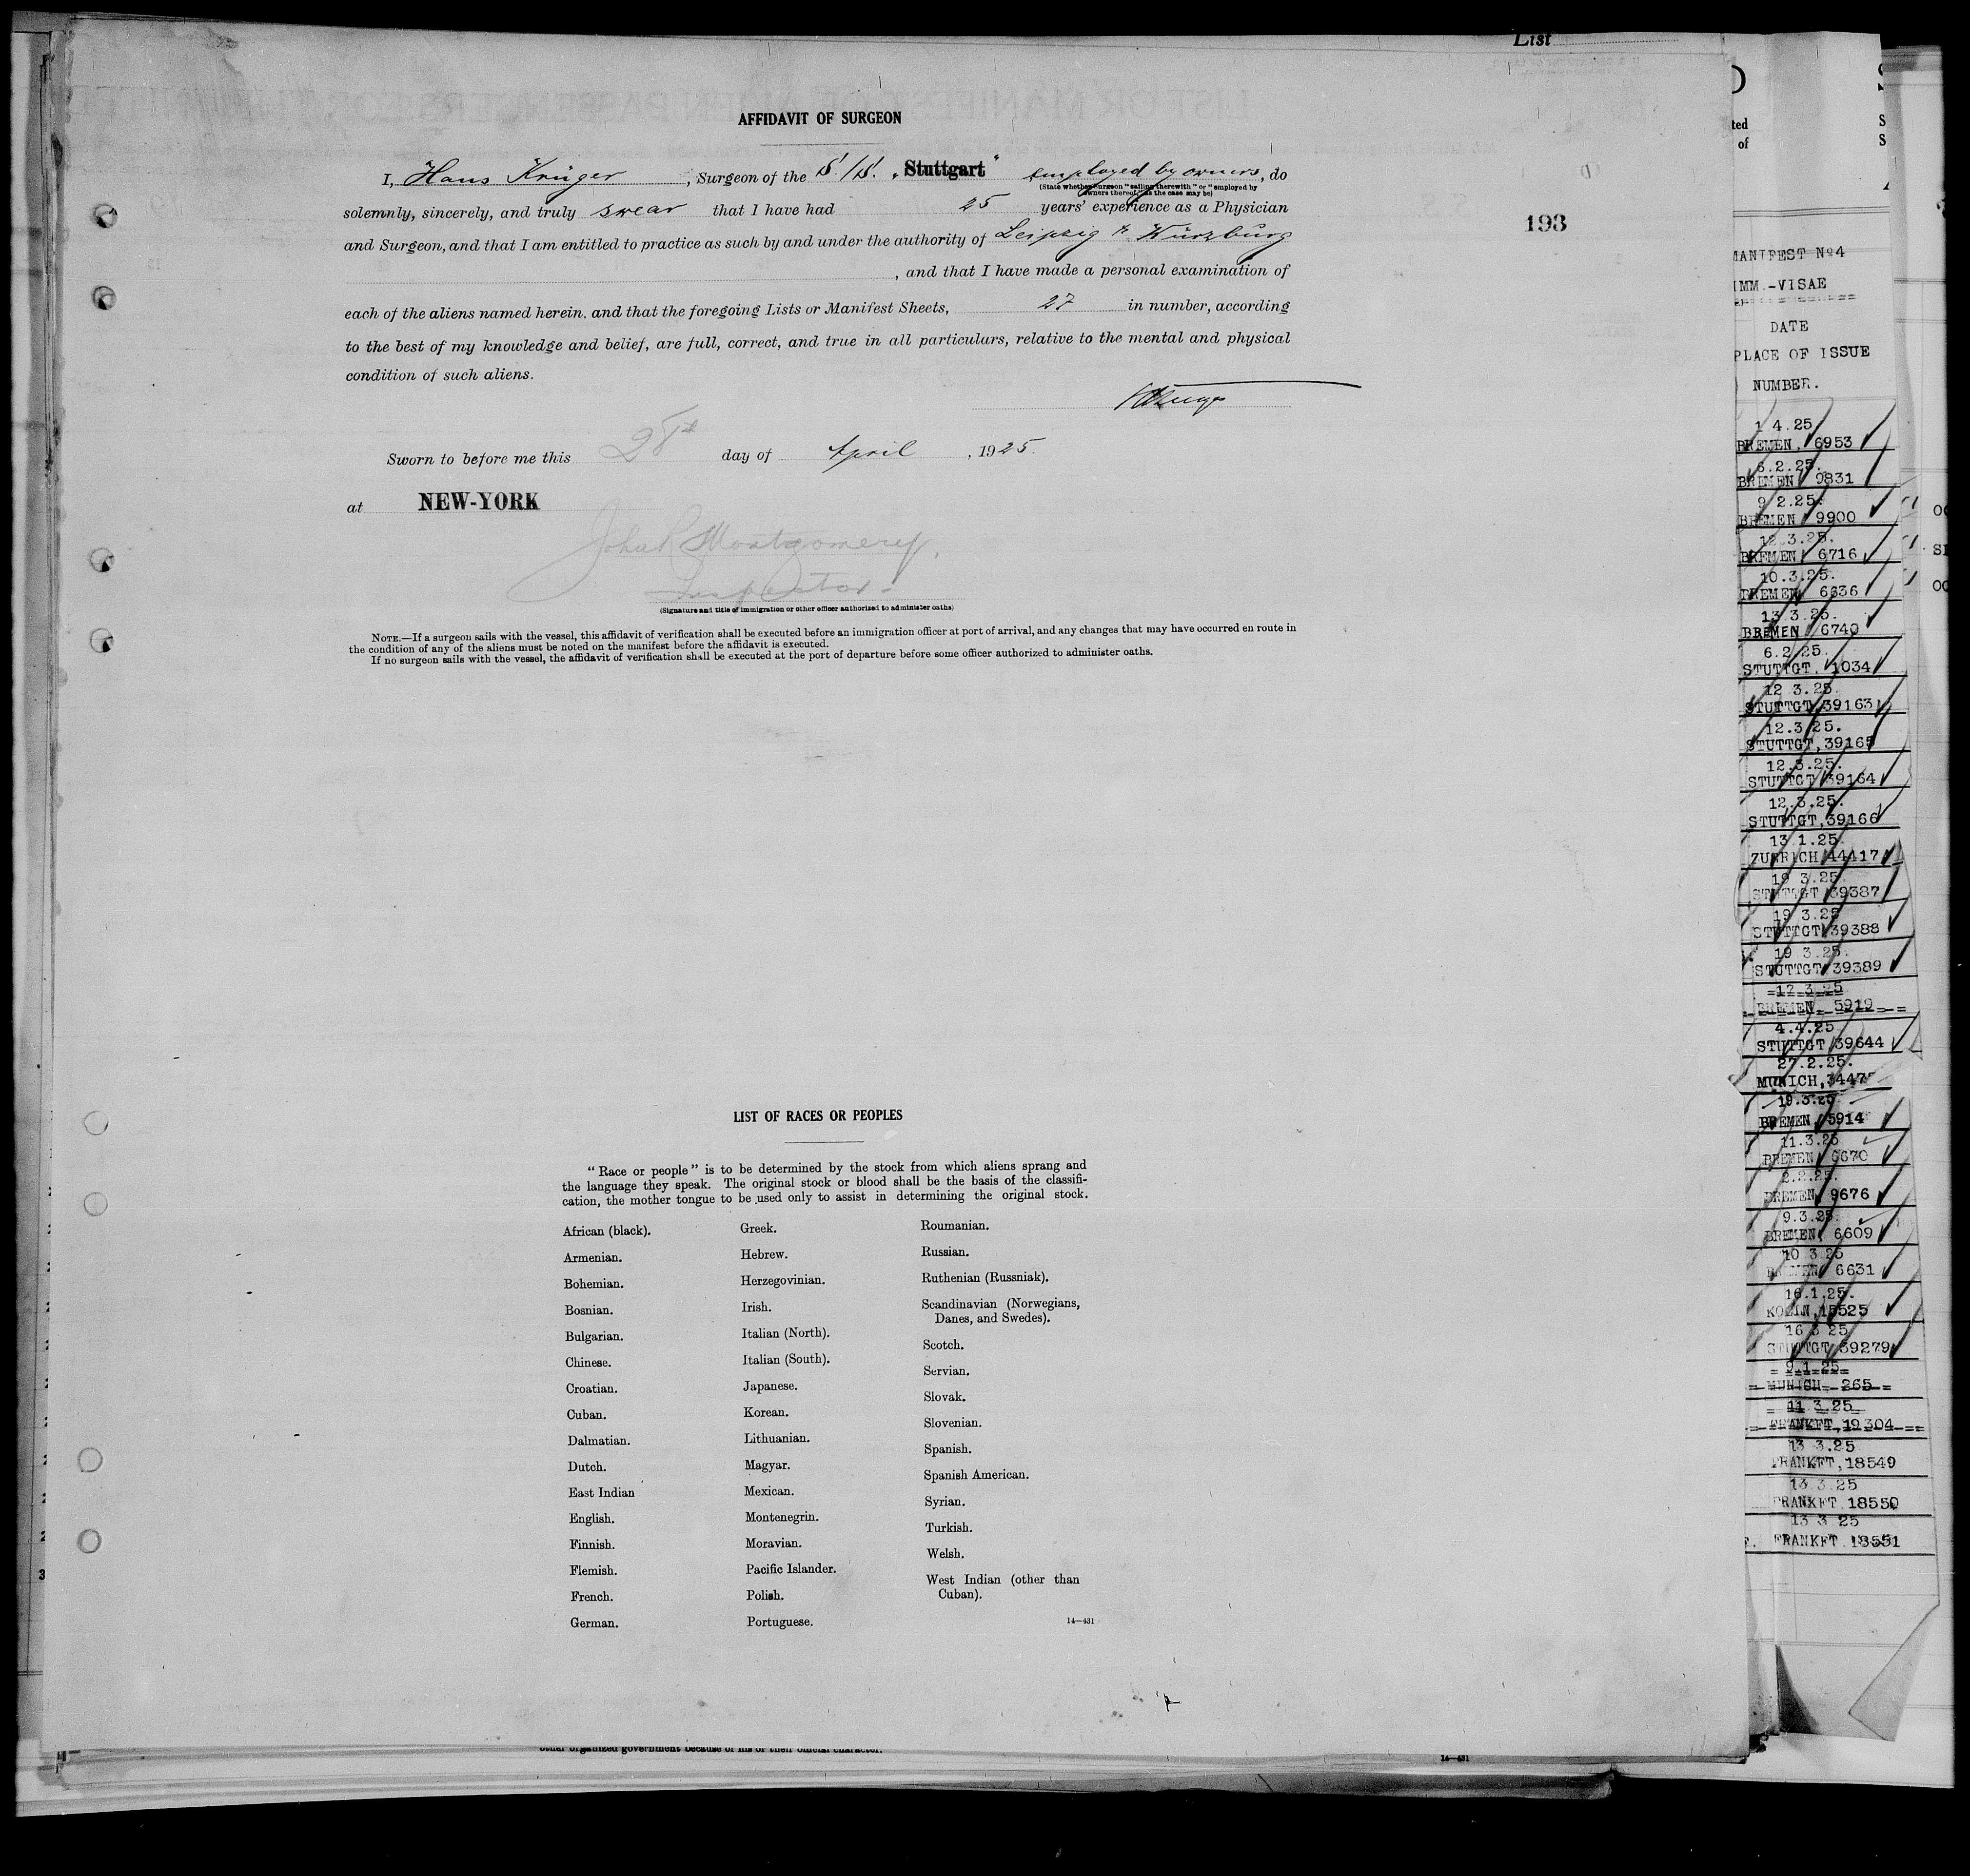 List
AFFIDAVIT OF SURGEON
I, Hans Krüger, Surgeon of the S./S. „Stuttgart" employed by owners, do
(State whether Surgeon "sailing therewith" or "employed by
owners thereof," as the case may be)
solemnly, sincerely, and truly swear that I have had 25 years' experience as a Physician
and Surgeon, and that I am entitled to practice as such by and under the authority of Leipzig & Würzburg
, and that I have made a personal examination of
each of the aliens named herein, and that the foregoing Lists or Manifest Sheets, 27 in number, according
to the best of my knowledge and belief, are full, correct, and true in all particulars, relative to the mental and physical
condition of such aliens.
Sworn to before me this 28th day of April, 1925.
at NEW-YORK
Montgomery,
Inspector.
(Signature and title of immigration or other officer authorized to administer oaths)
NOTE.—If a surgeon sails with the vessel, this affidavit of verification shall be executed before an immigration officer at port of arrival, and any changes that may have occurred en route in
the condition of any of the aliens must be noted on the manifest before the affidavit is executed.
If no surgeon sails with the vessel, the affidavit of verification shall be executed at the port of departure before some officer authorized to administer oaths.
193
LIST OF RACES OR PEOPLES
"Race or people" is to be determined by the stock from which aliens sprang and
the language they speak. The original stock or blood shall be the basis of the classifi-
cation, the mother tongue to be used only to assist in determining the original stock.
African (black).
Armenian.
Bohemian.
Bosnian.
Bulgarian.
Chinese.
Croatian.
Cuban.
Dalmatian.
Dutch.
East Indian
English.
Finnish.
Flemish.
French.
German.
Greek.
Hebrew.
Herzegovinian.
Irish.
Italian (North).
Italian (South).
Japanese.
Korean.
Lithuanian.
Magyar.
Mexican.
Montenegrin.
Moravian.
Pacific Islander.
Polish.
Portuguese.
Roumanian.
Russian.
Ruthenian (Russniak).
Scandinavian (Norwegians,
Danes, and Swedes).
Scotch.
Servian.
Slovak.
Slovenian.
Spanish.
Spanish American.
Syrian.
Turkish.
Welsh.
West Indian (other than
Cuban).
14—431
other organized government because of his or their official character.
14—431
ted
of
MANIFEST No4
IMM.-VISAE
DATE
PLACE OF ISSUE
NUMBER.
1 4.25
BREMEN, 6953
6.2.25.
BREMEN 9831
9 2.25.
BREMEN 9900
12.3.25.
BREMEN 6716
10.3.25.
BREMEN 6636
13 3.25.
BREMEN 6740
6.2.25.
STUTTGT. 1034
12 3.25.
STUTTGT, 39163
12.3.25.
STUTTGT, 39165
12.3.25.
STUTTGT 39164
12.3.25.
STUTTGT, 39166
13.1.25.
ZURRICH 44417
19 3.25
STUTTGT 39387
19 3.25
STUTTGT 39388
19 3.25.
STUTTGT 39389
12.3.25
BREMEN 5919
4.4.25
STUTTGT 39644
27.2.25.
MUNICH, 3447
19.3.25
BREMEN 5914
11.3.25
BREMEN 6670
2.2.25.
BREMEN 9676
9.3.25.
BREMEN 6609
10 3 25
BREMEN 6631
16.1.25.
KOELN, 15525
16 3 25
STUTTGT 39279
9.1.25
MUNICH 265
11.3.25
FRANKFT, 19304
13 3.25
FRANKFT, 18549
13 3.25
FRANKFT 18550
13 3 25
FRANKFT 18551